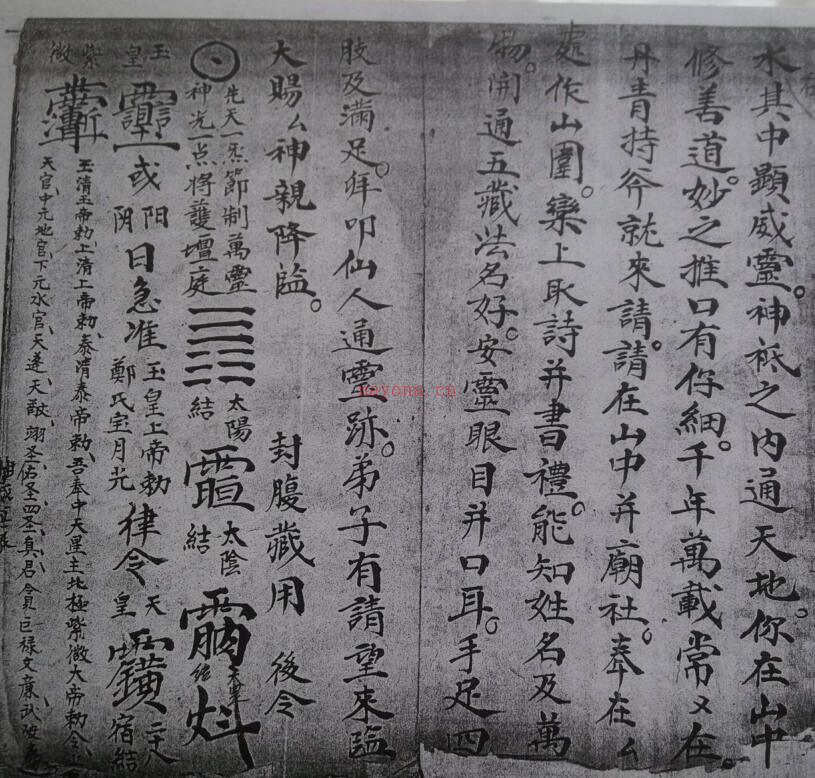 水其中顯威靈。神祇之内通天地。你在山中
修善道。妙之推口有仔細。千年萬載常々在。
丹青持斧就來請。請在山中并廟社。奉在厶
處作山圍。欒上取詩并書禮。能知姓名及萬
物。開通五藏法名好。安靈眼目并口耳。手足四
肢及滿足。拜叩仙人通靈跡。弟子有請望來臨
大賜厶神親降臨。 封腹藏用 後令
先天一炁節制萬靈
神光一点將護壇庭
太陽
結
太陰
結
玉
皇
或
阳
阴
日急准
玉皇上帝勅
鄭氏宝月光
律令
天
皇
二十八
宿結
紫
微
玉清玉帝勅、上清上帝勅、泰清泰帝勅、吾奉中天星主北極紫微大帝勅令、
天官、中元地官、下元水官、天蓬、天猷、翊圣、佑圣四圣真君、貪巨祿文廉武破
kayona.cn